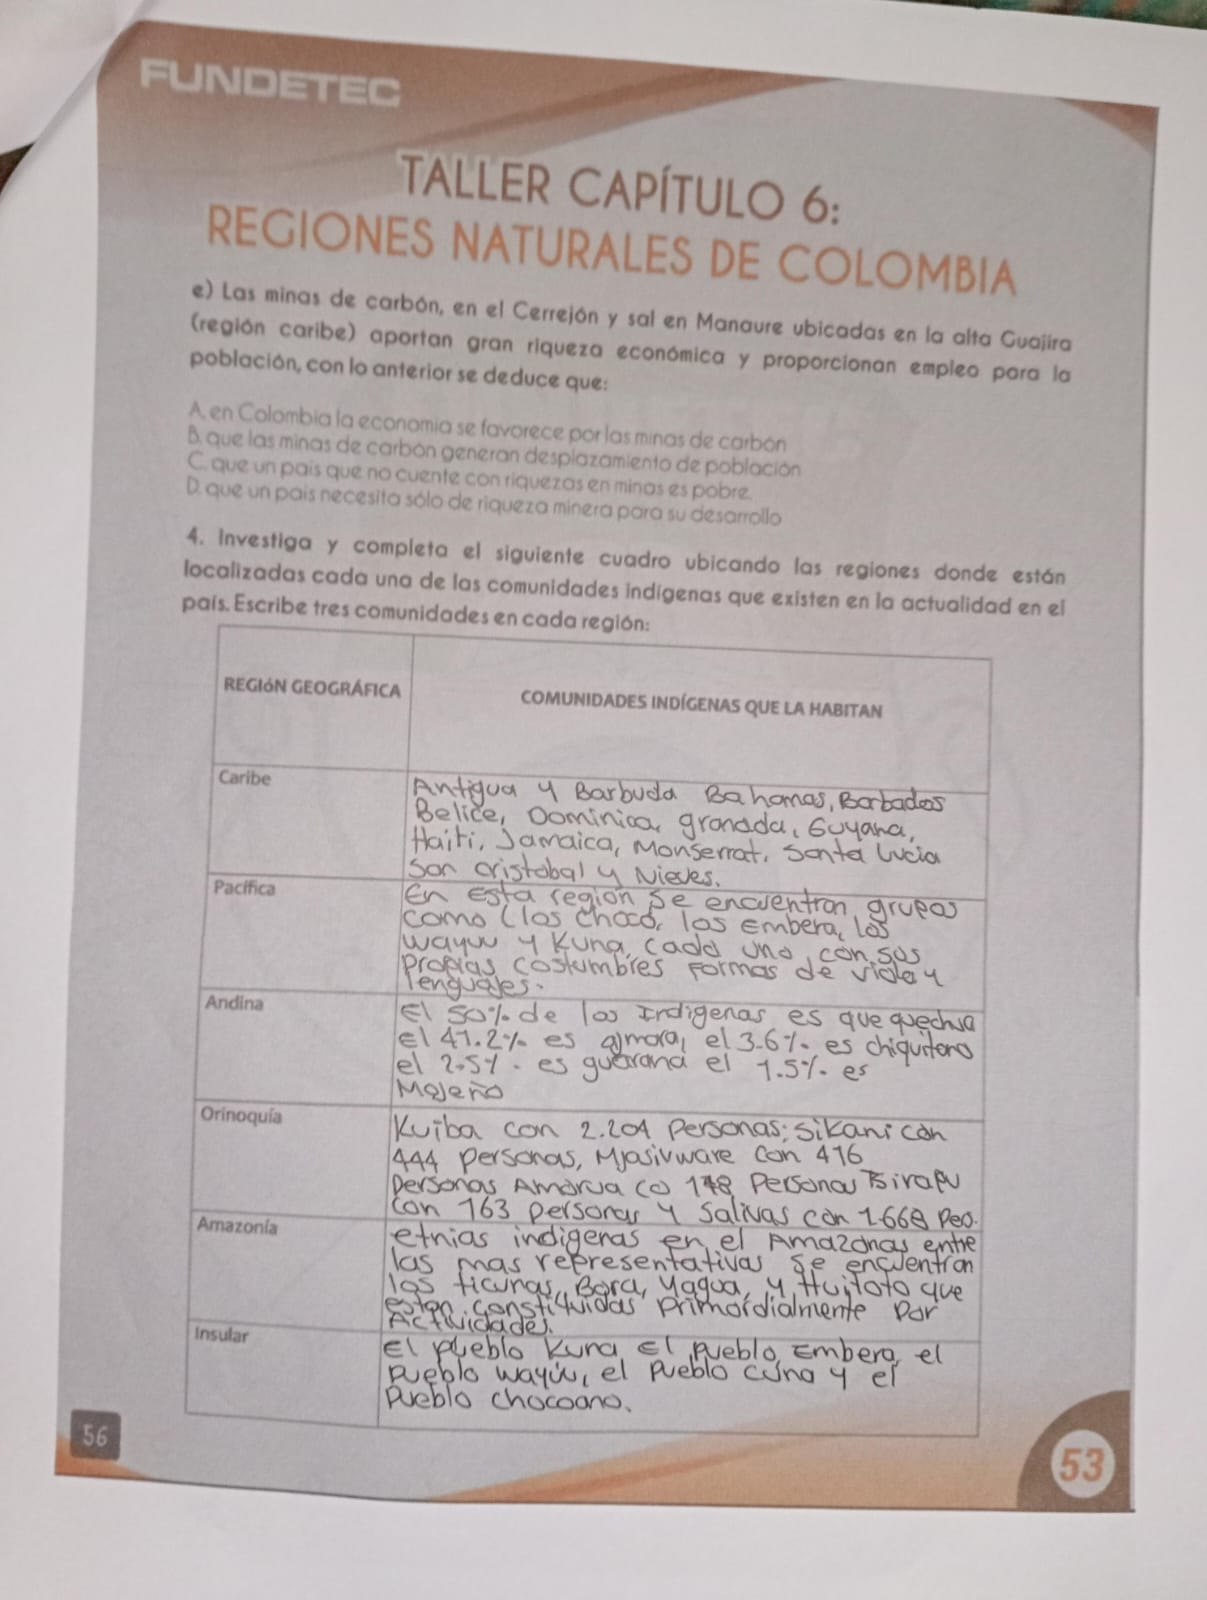 FUNDETEC
TALLER CAPÍTULO 6:
REGIONES NATURALES DE COLOMBIA
e) Las minas de carbón, en el Cerrejón y sal en Manaure ubicadas en la alta Guajira
(región caribe) aportan gran riqueza económica y proporcionan empleo para la
población, con lo anterior se deduce que:
A. en Colombia la economia se favorece por las minas de carbón
B. que las minas de carbón generan desplazamiento de población
C. que un pais que no cuente con riquezas en minas es pobre.
D. que un pais necesita sólo de riqueza minera para su desarrollo
4. Investiga y completa el siguiente cuadro ubicando las regiones donde están
localizadas cada una de las comunidades indígenas que existen en la actualidad en el
país. Escribe tres comunidades en cada región:
REGIÓN GEOGRÁFICA
COMUNIDADES INDÍGENAS QUE LA HABITAN
Caribe
Antigua y Barbuda Bahamas, Barbados
Belice, Dominica, granada, Guyana,
Haiti, Jamaica, Monserrat, Santa Lucia
San cristobal y Nieves.
Pacífica
En Esta región se encuentran grupos
como (los Chocó, los Embera, los
wayuu y Kuna, cada uno con sus
propias costumbres Formas de vida y
lenguajes.
Andina
El 50% de los Indigenas es que quechua
el 41.2% es aymora, el 3.6% es chiquitano
el 2.5% es guarana el 1.5% es
Mojeño
Orinoquía
Kuiba con 2.204 Personas; Sikani con
444 personas, Mjasivware con 416
personas Amorua co 178 Personas Tsirapu
con 163 personas y salivas con 1.668 Peo.
Amazonía
etnias indigenas en el Amazonas entre
las mas representativas se encuentran
los ticunas, Bora, yagua, y Huitoto que
estan constituidas primordialmente por
Actividades.
Insular
El pueblo Kuna El pueblo Embera, el
pueblo wayúu, el Pueblo cuna y el
Pueblo chocoano.
56
53